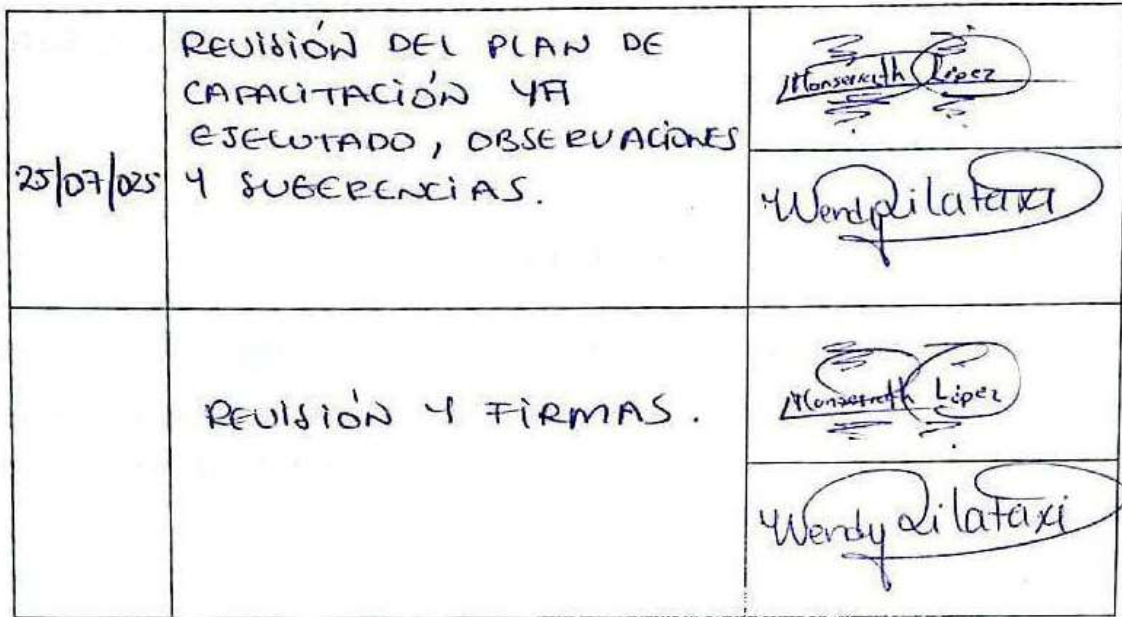 REVISIÓN DEL PLAN DE
CAPACITACIÓN YA
EJECUTADO, OBSERVACIONES
25/07/025 Y SUGERENCIAS.
Monserrath López
Wendy Qilataxi
REVISIÓN Y FIRMAS.
Monserrath López
Wendy Qilataxi